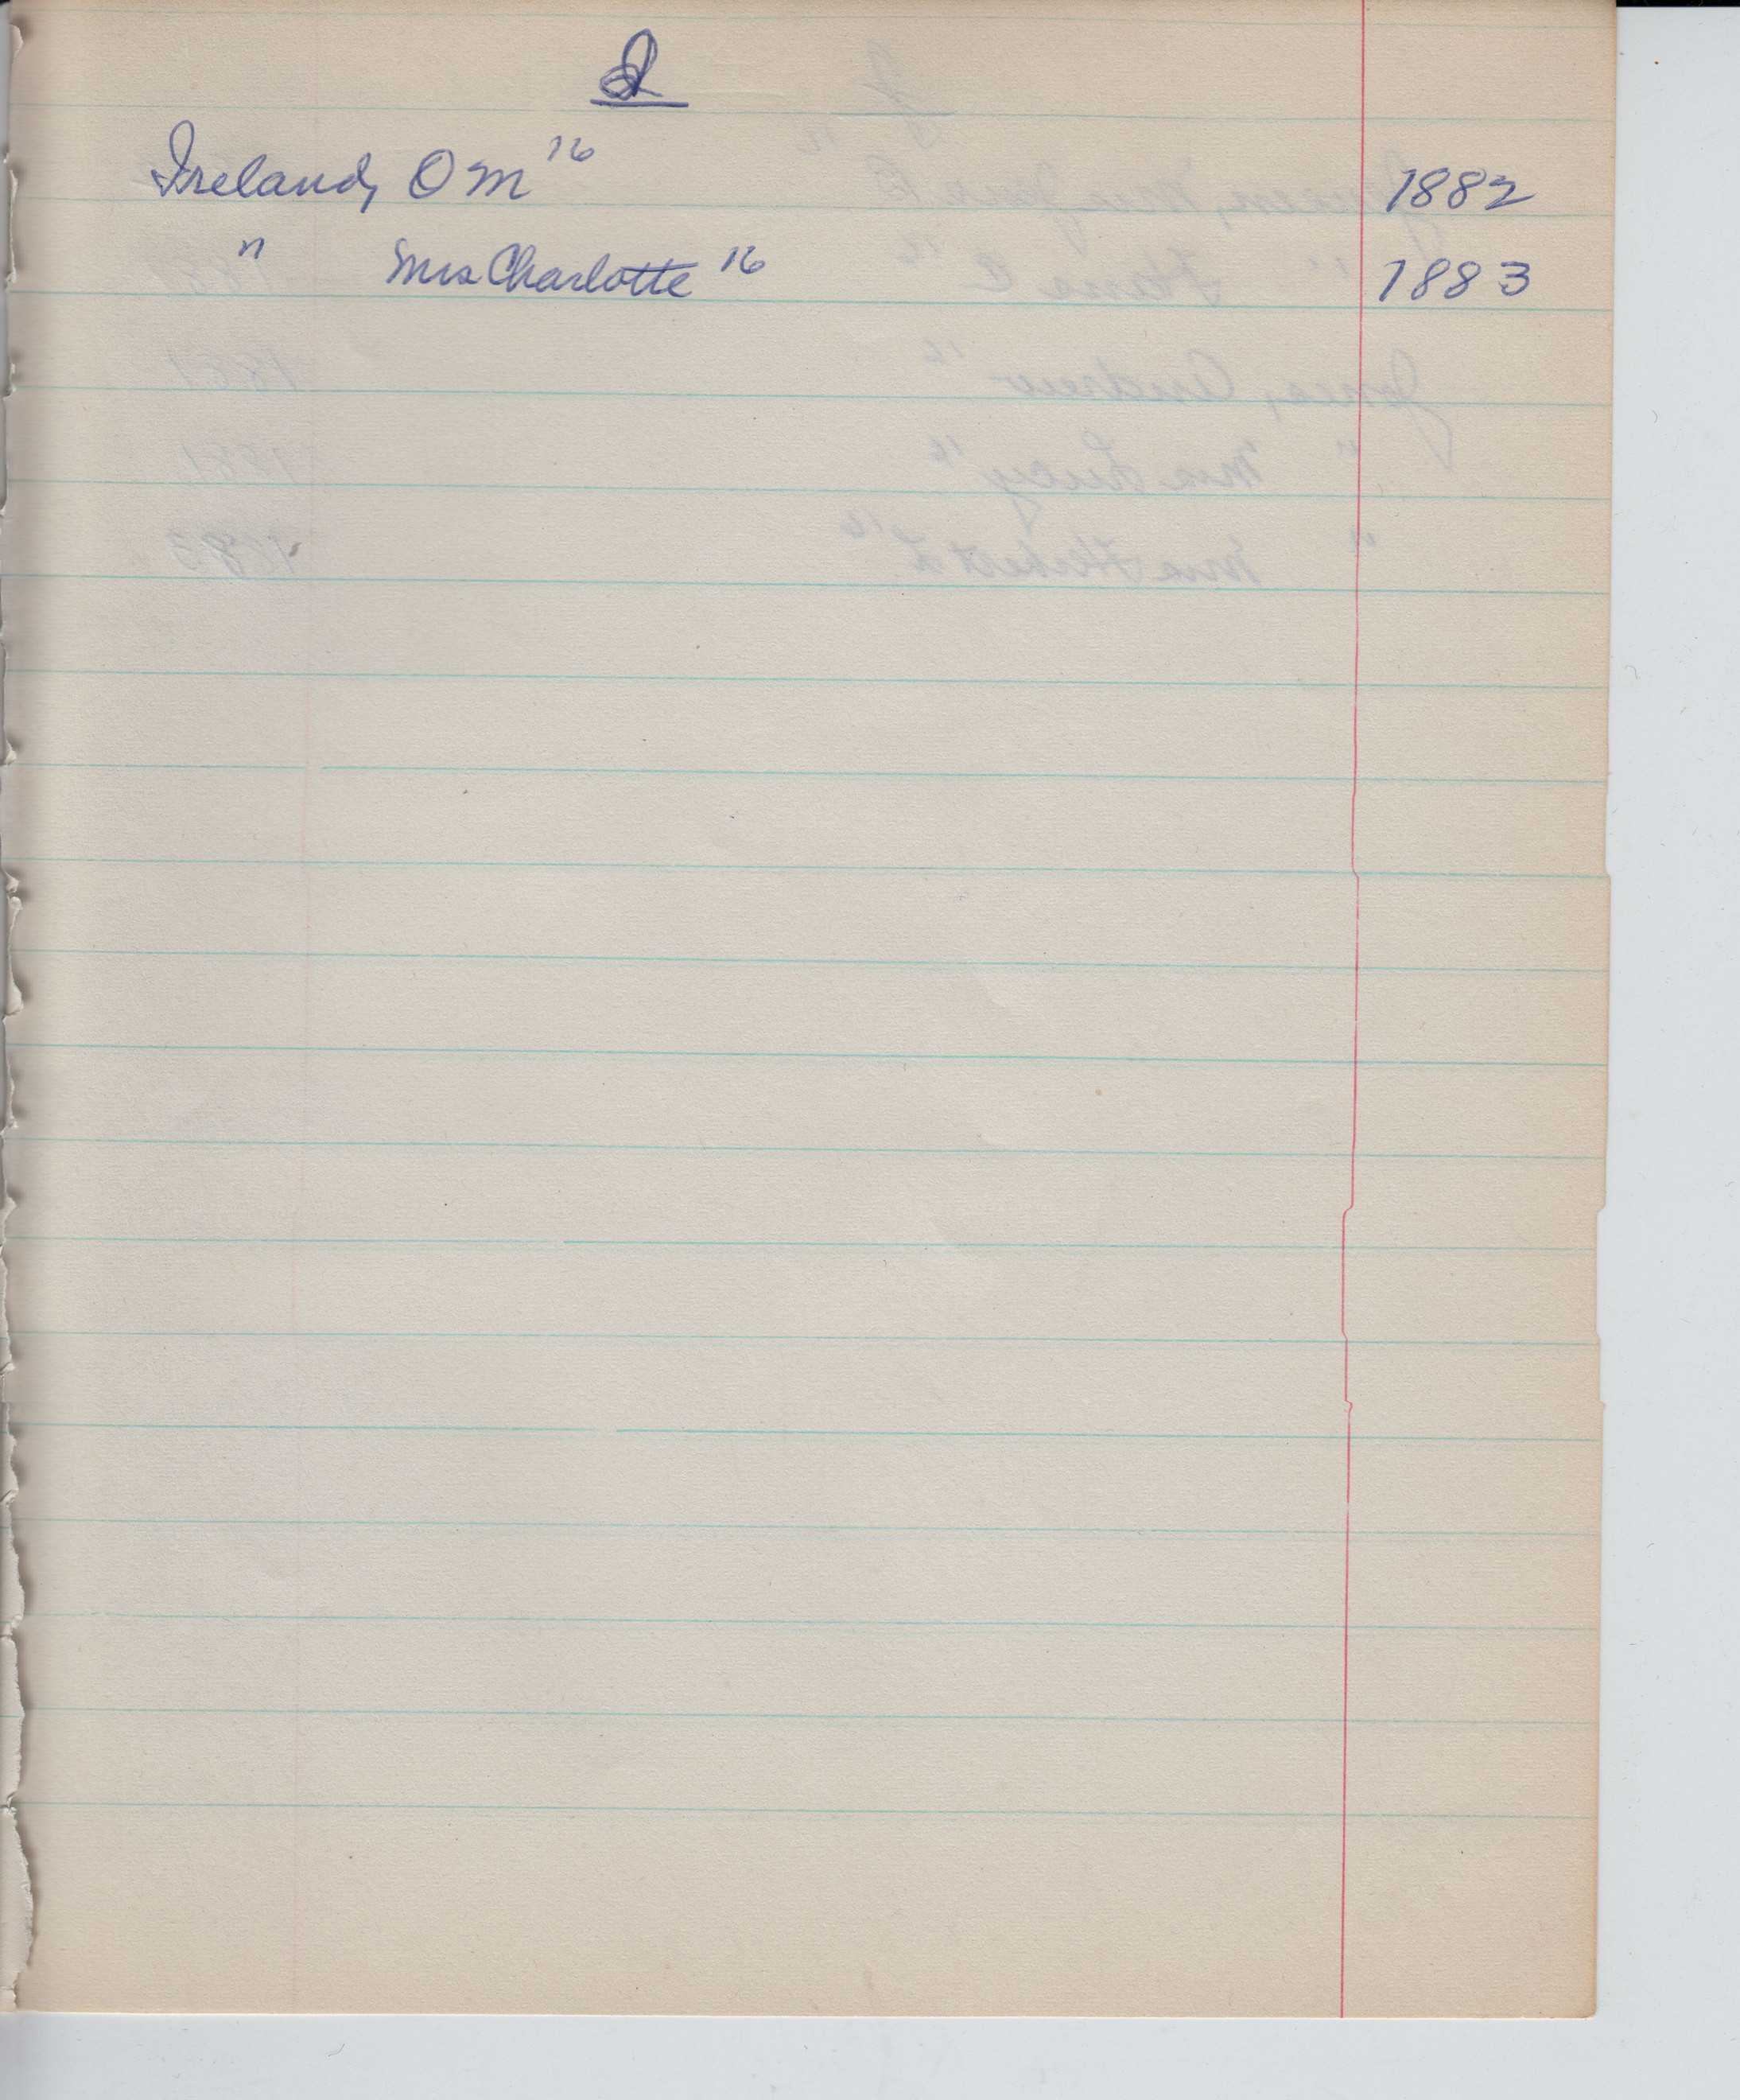 I
Ireland, O M 16 1882
" Mrs Charlotte 16 1883